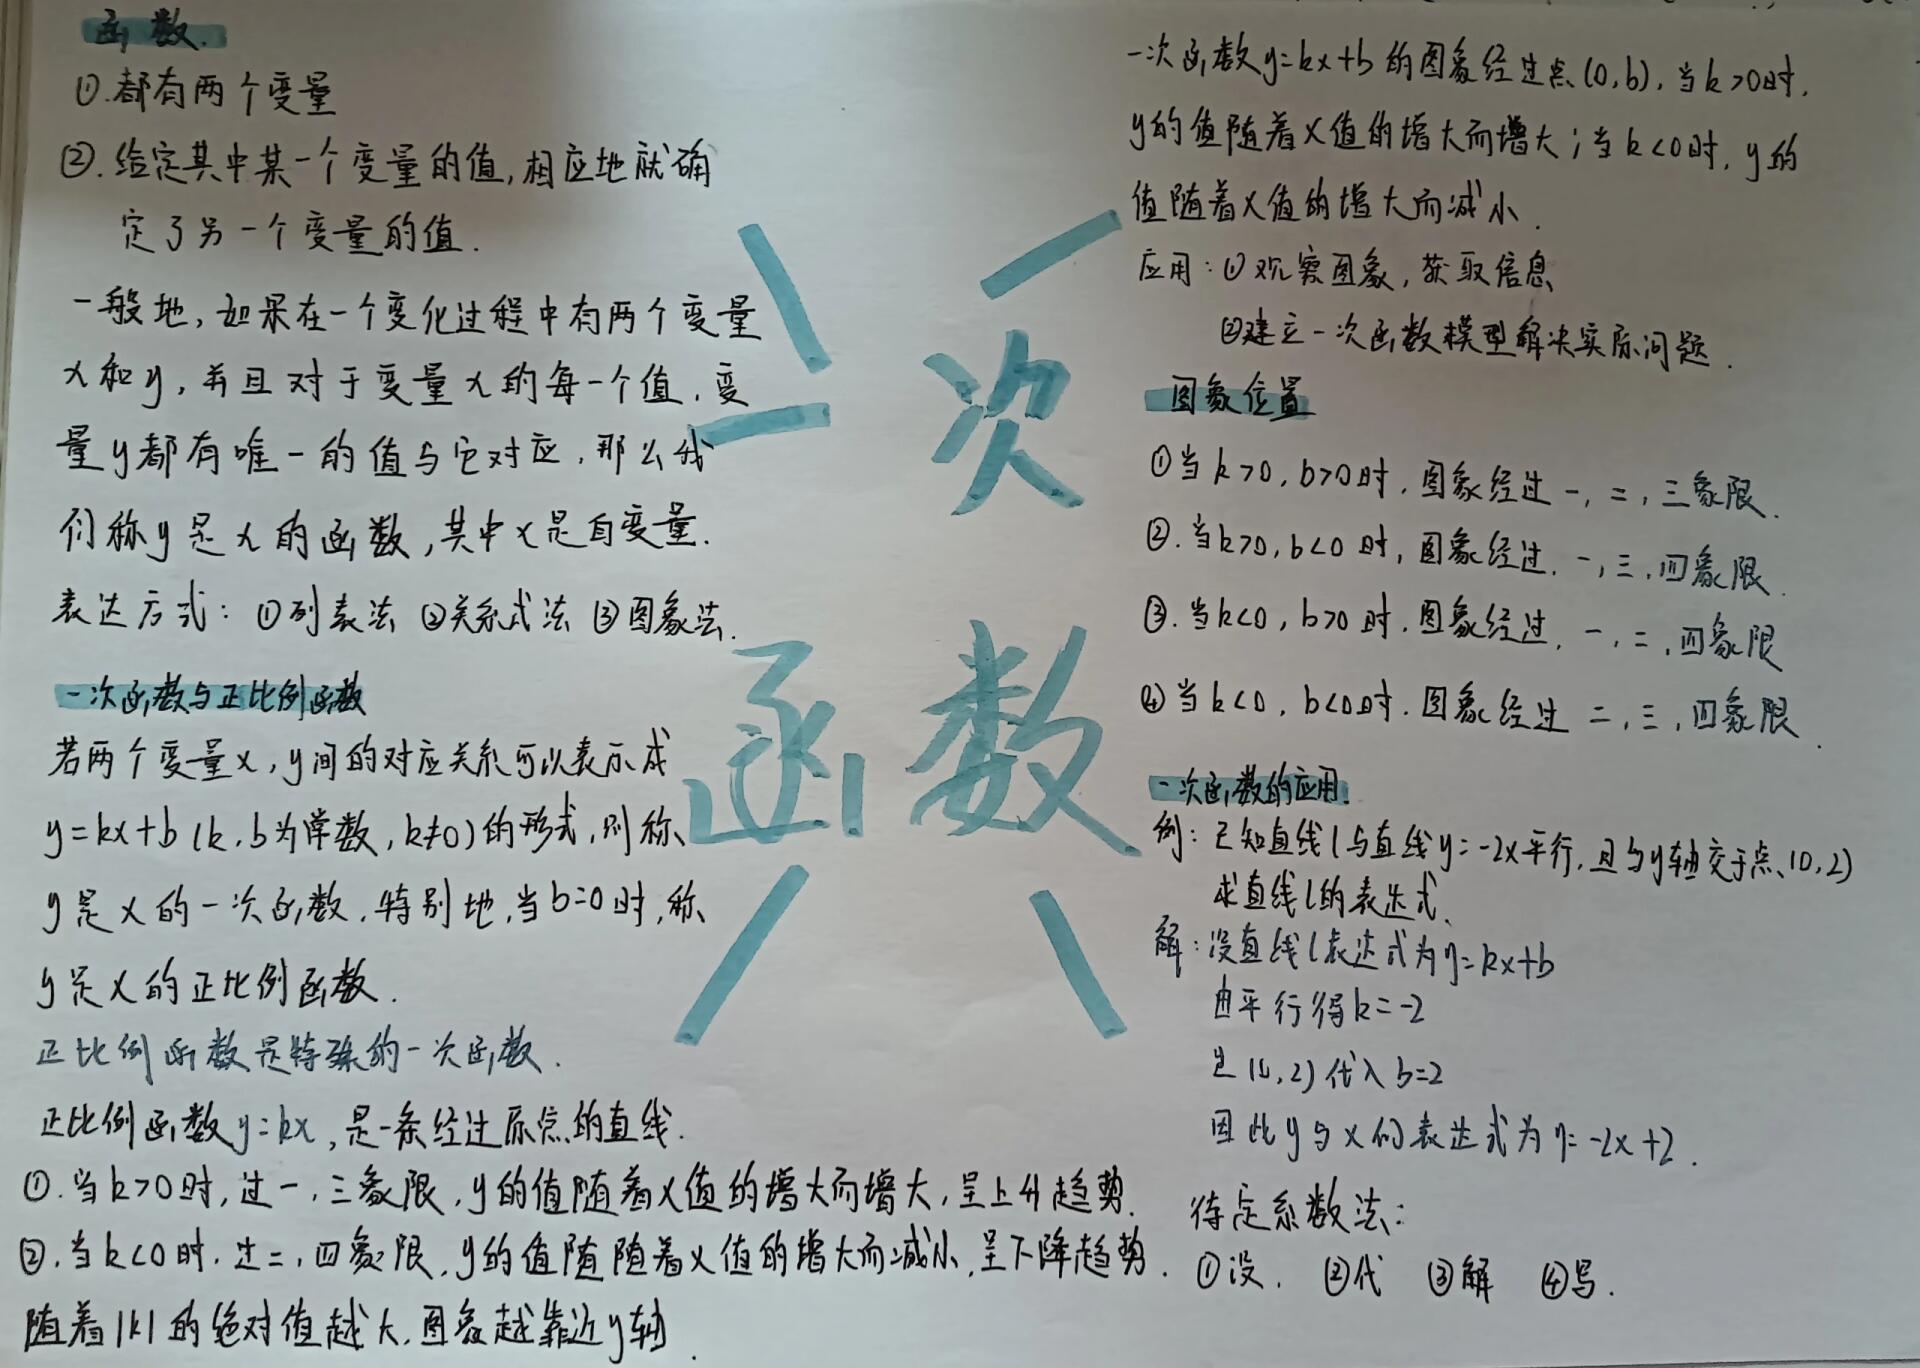 函数.
①.都有两个变量
②.给定其中某一个变量的值,相应地就确
定了另一个变量的值.
一般地,如果在一个变化过程中有两个变量
x和y,并且对于变量x的每一个值,变
量y都有唯一的值与它对应,那么我
们称y是x的函数,其中x是自变量.
表达方式:①列表法 ②关系式法 ③图象法.
一次函数与正比例函数
若两个变量x,y间的对应关系可以表示成
y=kx+b(k,b为常数,k≠0)的形式,则称
y是x的一次函数.特别地,当b=0时,称
y是x的正比例函数.
正比例函数是特殊的一次函数.
正比例函数y=kx,是一条经过原点的直线.
①.当k>0时,过一,三象限,y的值随着x值的增大而增大,呈上升趋势.
②.当k<0时.过二,四象限,y的值随随着x值的增大而减小,呈下降趋势.
随着|k|的绝对值越大,图象越靠近y轴.
一次
函数
一次函数y=kx+b的图象经过点(0,b),当k>0时,
y的值随着x值的增大而增大;当k<0时,y的
值随着x值的增大而减小.
应用:①观察图象,获取信息
②建立一次函数模型解决实际问题.
图象位置
①当k>0,b>0时.图象经过一,二,三象限.
②.当k>0,b<0时,图象经过.一,三,四象限.
③.当k<0,b>0时.图象经过.一,二,四象限
④当k<0,b<0时.图象经过二,三,四象限.
一次函数的应用.
例:已知直线l与直线y=-2x平行,且与y轴交于点(0,2)
求直线l的表达式.
解:设直线l表达式为y=kx+b
由平行得k=-2
过(0,2)代入b=2
因此y与x的表达式为y=-2x+2.
待定系数法:
①设. ②代 ③解 ④写.